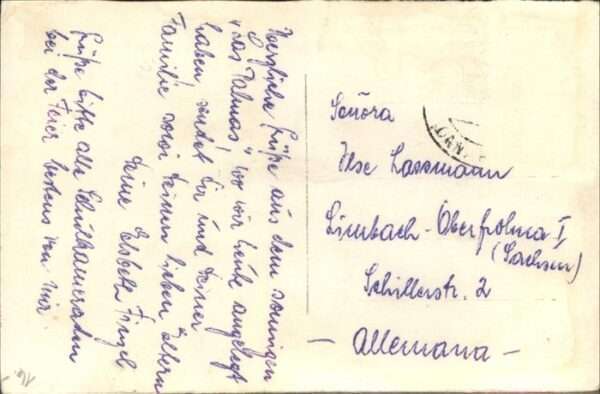 Herzliche Grüße aus dem sonnigen
"Las Palmas" wo wir heute angelegt
haben, sendet Dir und Deiner
Familie sowie Deinen lieben Eltern
Deine Elsbeth
Grüße bitte alle Schulkameraden
bei der Feier bestens von mir.
Señora
Ilse Lassmann
Limbach-Oberfrohna I
(Sachsen)
Schillerstr. 2
- Allemana -